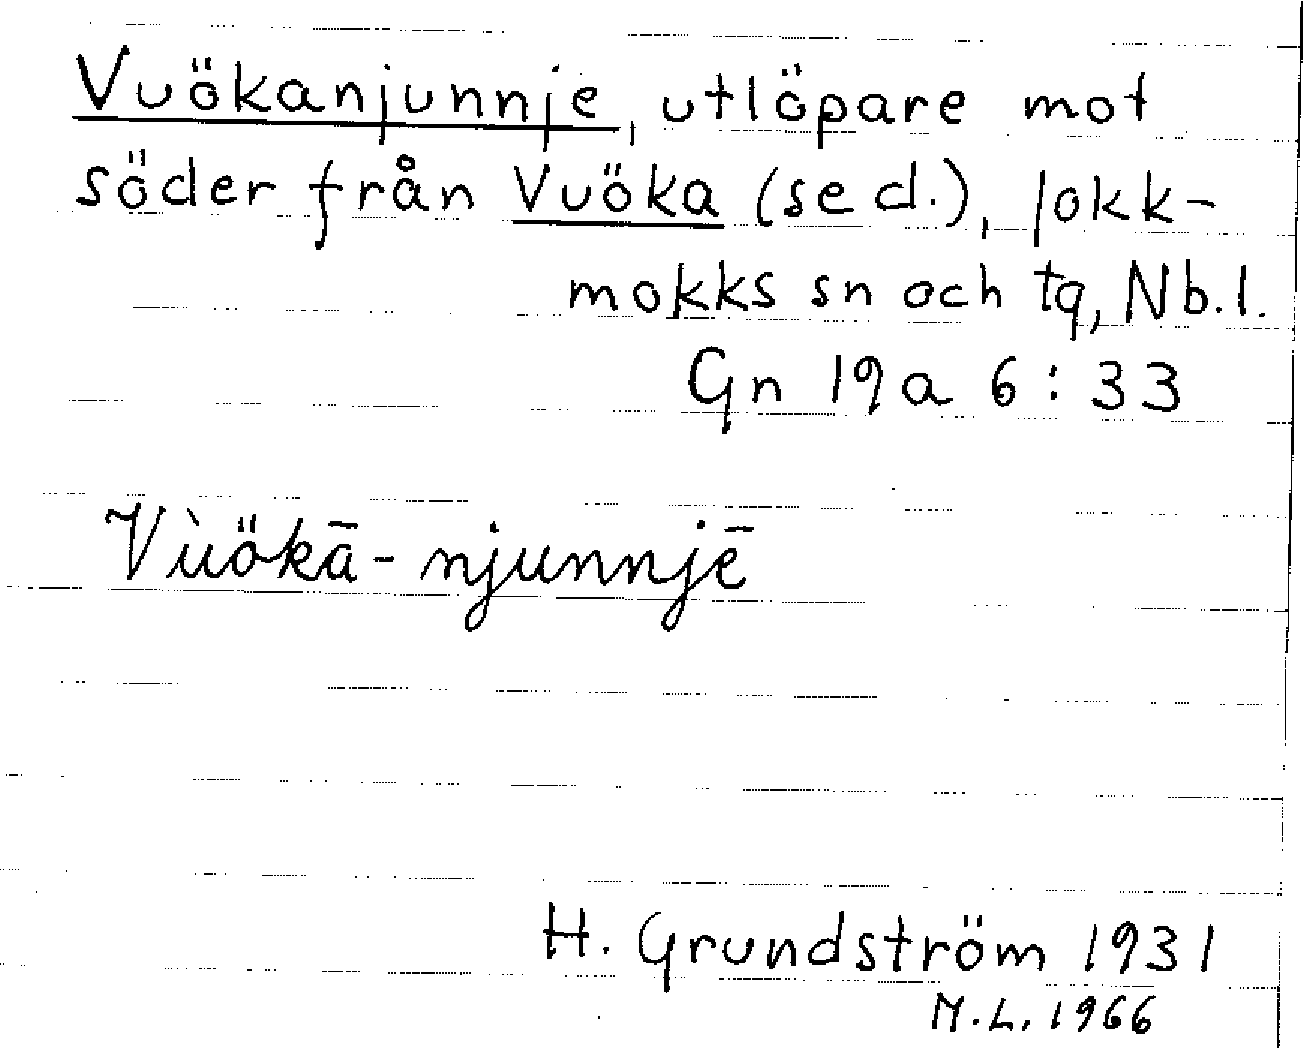 Vuökanjunnje, utlöpare mot
söder från Vuöka (se d.), Jokk-
mokks sn och tg, Nb.l.
Gn 19 a 6 : 33
Vùökā-njunnjē
H. Grundström 1931
M.L. 1966